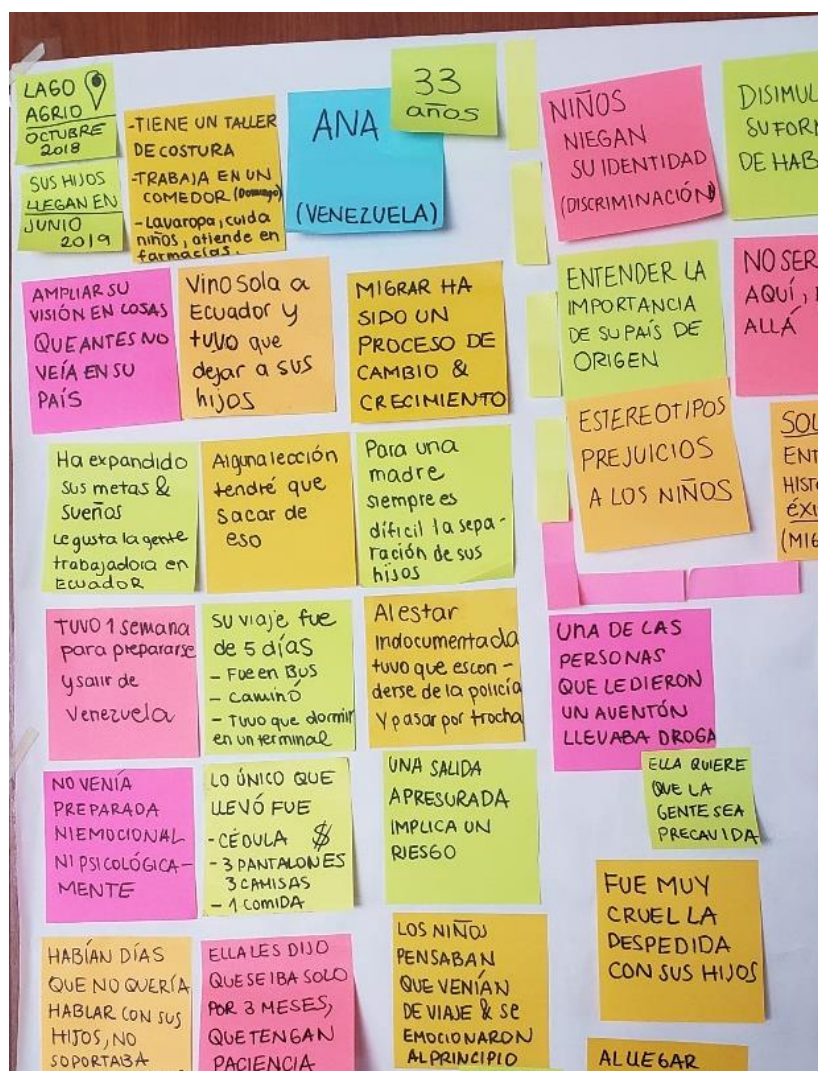 LAGO
AGRIO
OCTUBRE
2018
SUS HIJOS
LLEGAN EN
JUNIO
2019
-TIENE UN TALLER
DE COSTURA
-TRABAJA EN UN
COMEDOR (Domingo)
- Lava ropa, cuida
niños, atiende en
farmacias.
ANA
(VENEZUELA)
33
años
NIÑOS
NIEGAN
SU IDENTIDAD
(DISCRIMINACIÓN)
DISIMUL
SU FORM
DE HAB
AMPLIAR SU
VISIÓN EN COSAS
QUE ANTES NO
VEÍA EN SU
PAÍS
Vino sola a
Ecuador y
tuvo que
dejar a sus
hijos
MIGRAR HA
SIDO UN
PROCESO DE
CAMBIO &
CRECIMIENTO
ENTENDER LA
IMPORTANCIA
DE SU PAÍS DE
ORIGEN
NO SER
AQUÍ,
ALLÁ
Ha expandido
sus metas &
sueños
Le gusta la gente
trabajadora en
Ecuador
Alguna lección
tendré que
sacar de
eso
Para una
madre
siempre es
difícil la sepa-
ración de sus
hijos
ESTEREOTIPOS
PREJUICIOS
A LOS NIÑOS
SOL
ENT
HIST
ÉXI
(MIG
TUVO 1 semana
para prepararse
y salir de
Venezuela
SU viaje fue
de 5 días
- Fue en Bus
- Caminó
- Tuvo que dormir
en un terminal
Al estar
indocumentada
tuvo que escon-
derse de la policía
y pasar por trocha
UNA DE LAS
PERSONAS
QUE LE DIERON
UN AVENTÓN
LLEVABA DROGA
NO VENÍA
PREPARADA
NI EMOCIONAL
NI PSICOLÓGICA-
MENTE
LO ÚNICO QUE
LLEVÓ FUE
- CÉDULA $
- 3 PANTALONES
3 CAMISAS
- 1 COMIDA
UNA SALIDA
APRESURADA
IMPLICA UN
RIESGO
ELLA QUIERE
QUE LA
GENTE SEA
PRECAVIDA
FUE MUY
CRUEL LA
DESPEDIDA
CON SUS HIJOS
HABÍAN DÍAS
QUE NO QUERÍA
HABLAR CON SUS
HIJOS, NO
SOPORTABA
ELLA LES DIJO
QUE SE IBA SOLO
POR 3 MESES,
QUE TENGAN
PACIENCIA
LOS NIÑOS
PENSABAN
QUE VENÍAN
DE VIAJE & SE
EMOCIONARON
AL PRINCIPIO
AL LLEGAR